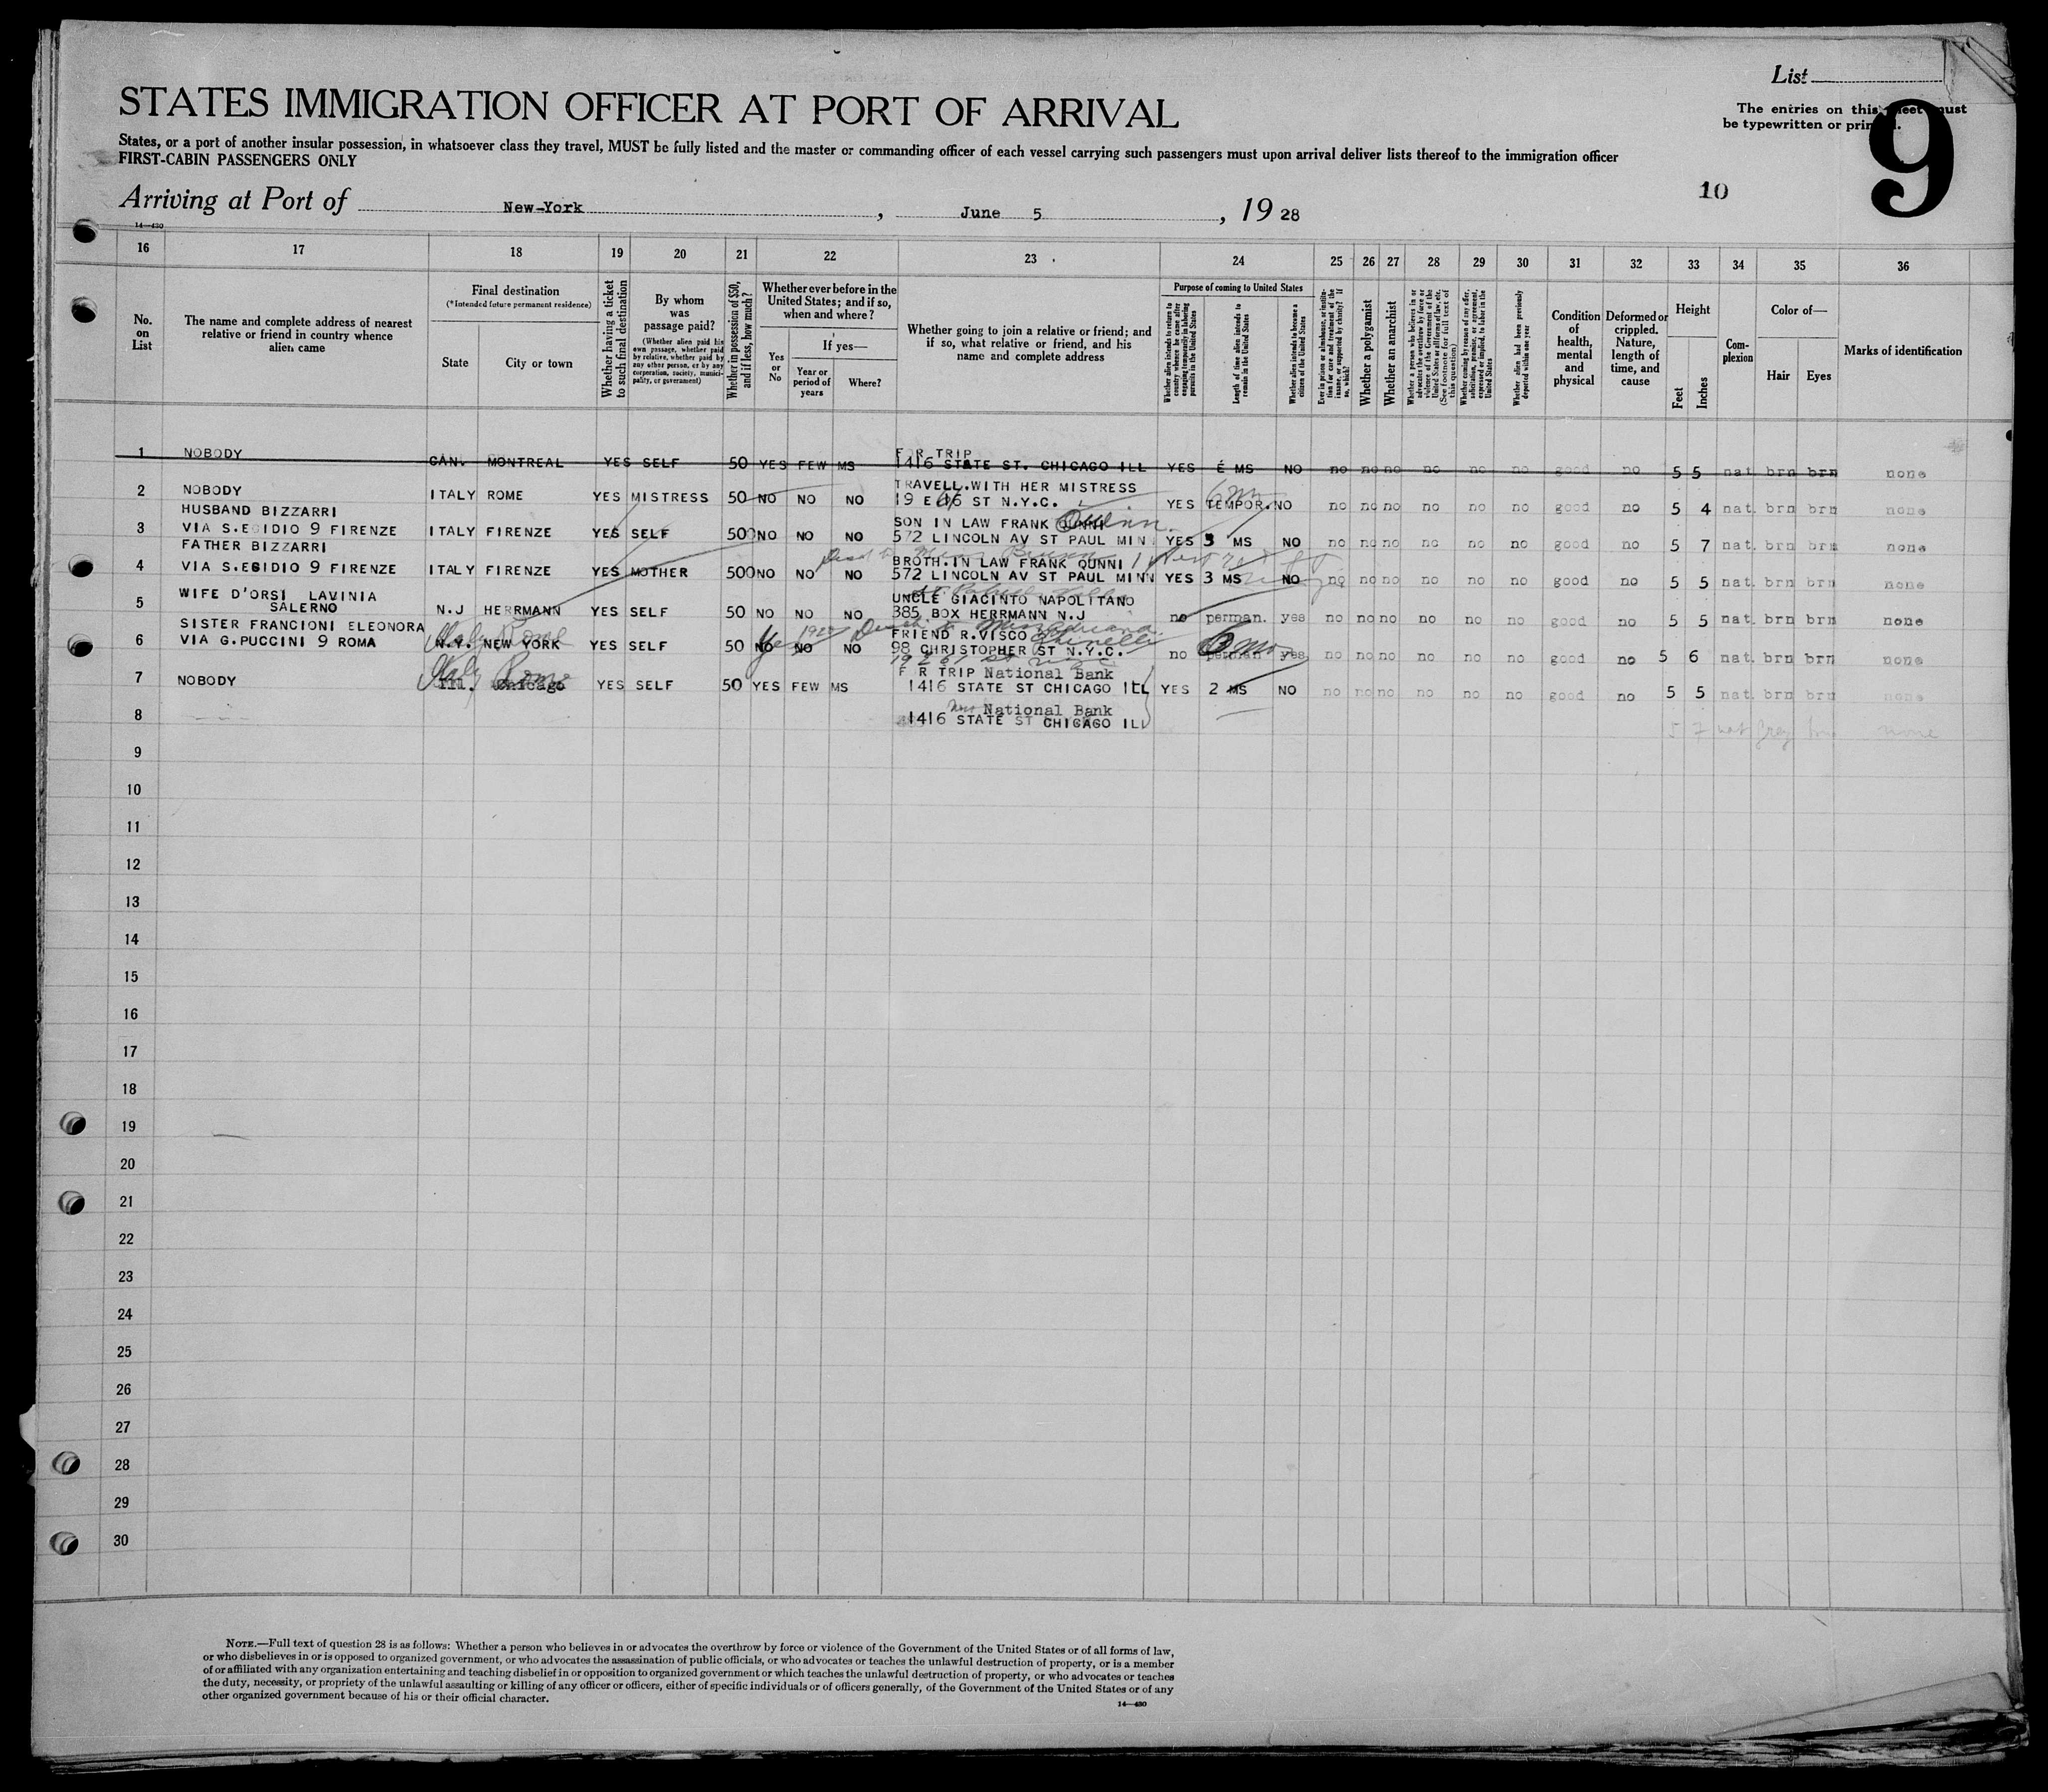 List
STATES IMMIGRATION OFFICER AT PORT OF ARRIVAL
The entries on this sheet must
be typewritten or printed.
9
States, or a port of another insular possession, in whatsoever class they travel, MUST be fully listed and the master or commanding officer of each vessel carrying such passengers must upon arrival deliver lists thereof to the immigration officer
FIRST-CABIN PASSENGERS ONLY
10
Arriving at Port of New-York, June 5, 1928
14—430
16 17 18 19 20 21 22 23 24 25 26 27 28 29 30 31 32 33 34 35 36
No. on List
The name and complete address of nearest relative or friend in country whence alien came
Final destination
(*Intended future permanent residence)
State
City or town
Whether having a ticket to such final destination
By whom was passage paid?
(Whether alien paid his own passage, whether paid by relative, whether paid by any other person, or by any corporation, society, municipality, or government)
Whether in possession of $50, and if less, how much?
Whether ever before in the United States; and if so, when and where?
Yes or No
If yes—
Year or period of years
Where?
Whether going to join a relative or friend; and if so, what relative or friend, and his name and complete address
Purpose of coming to United States
Whether alien intends to return to country whence he came after engaging temporarily in laboring pursuits in the United States
Length of time alien intends to remain in the United States
Whether alien intends to become a citizen of the United States
Ever in prison or almshouse, or institution for care and treatment of the insane, or supported by charity? If so, which?
Whether a polygamist
Whether an anarchist
Whether a person who believes in or advocates the overthrow by force or violence of the Government of the United States or all forms of law, etc. (See footnote for full text of this question)
Whether coming by reason of any offer, solicitation, promise, or agreement, expressed or implied, to labor in the United States
Whether alien had been previously deported within one year
Condition of health, mental and physical
Deformed or crippled. Nature, length of time, and cause
Height
Feet
Inches
Complexion
Color of—
Hair
Eyes
Marks of identification
1 NOBODY CAN. MONTREAL YES SELF 50 YES FEW MS F R TRIP
1416 STATE ST. CHICAGO ILL YES MS NO no no no no no no good no 5 5 nat brn brn none
2 NOBODY ITALY ROME YES MISTRESS 50 NO NO NO TRAVELL.WITH HER MISTRESS
19 E ST N.Y.C. YES TEMPOR. 6 m NO no no no no no no good no 5 4 nat. brn brn none
3 HUSBAND BIZZARRI
VIA S.EGIDIO 9 FIRENZE ITALY FIRENZE YES SELF 500 NO NO NO SON IN LAW FRANK QUNNI Quinn
572 LINCOLN AV ST PAUL MIN YES 3 MS NO no no no no no no good no 5 7 nat. brn brn none
4 FATHER BIZZARRI
VIA S.EGIDIO 9 FIRENZE ITALY FIRENZE YES MOTHER 500 NO NO NO BROTH.IN LAW FRANK QUNNI
572 LINCOLN AV ST PAUL MINN YES 3 MS NO no no no no no no good no 5 5 nat. brn brn none
5 WIFE D'ORSI LAVINIA
SALERNO N.J HERRMANN YES SELF 50 NO NO NO UNCLE GIACINTO NAPOLITANO
385 BOX HERRMANN N.J no perman. yes no no no no no no good no 5 5 nat brn brn none
6 SISTER FRANCIONI ELEONORA
VIA G.PUCCINI 9 ROMA Italy Rome N.Y. NEW YORK YES SELF 50 NO Yes NO NO FRIEND R.VISCO
98 CHRISTOPHER ST N.Y.C. no perman 6 mo yes no no no no no no good no 5 6 nat. brn brn none
7 NOBODY Italy Rome Ill. Chicago YES SELF 50 YES FEW MS F R TRIP National Bank
1416 STATE ST CHICAGO ILL YES 2 MS NO no no no no no no good no 5 5 nat brn brn none
8 National Bank
1416 STATE ST CHICAGO ILL 5 7 nat grey brn none
9
10
11
12
13
14
15
16
17
18
19
20
21
22
23
24
25
26
27
28
29
30
NOTE.—Full text of question 28 is as follows: Whether a person who believes in or advocates the overthrow by force or violence of the Government of the United States or of all forms of law,
or who disbelieves in or is opposed to organized government, or who advocates the assassination of public officials, or who advocates or teaches the unlawful destruction of property, or is a member
of or affiliated with any organization entertaining and teaching disbelief in or opposition to organized government or which teaches the unlawful destruction of property, or who advocates or teaches
the duty, necessity, or propriety of the unlawful assaulting or killing of any officer or officers, either of specific individuals or of officers generally, of the Government of the United States or of any
other organized government because of his or their official character.
14—430